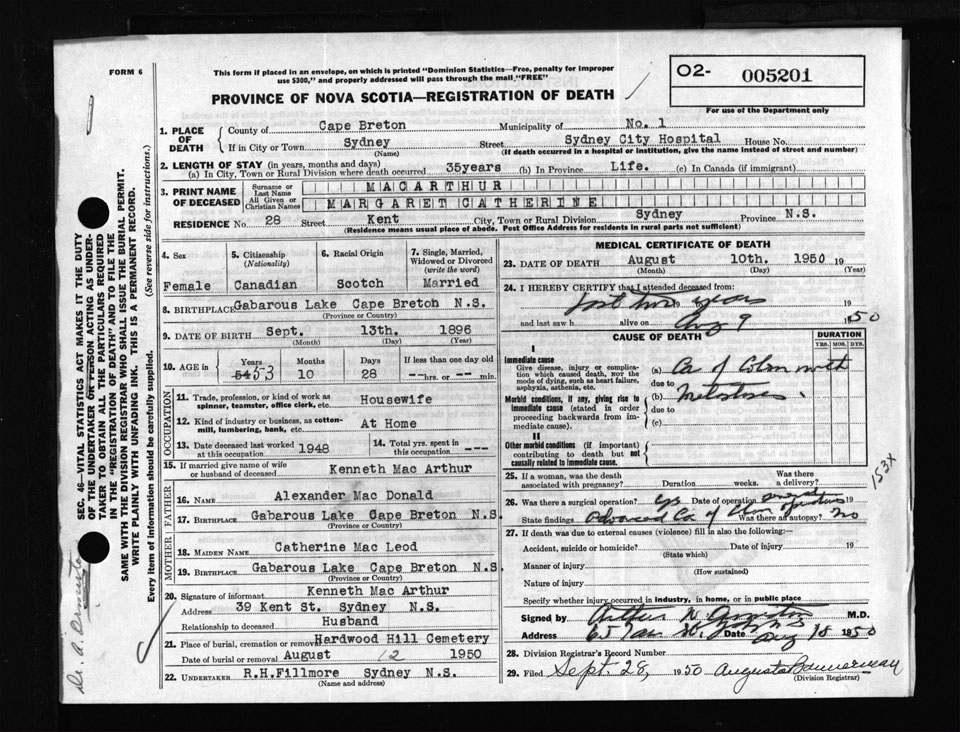 FORM 6
This form if placed in an envelope, on which is printed "Dominion Statistics—Free, penalty for improper
use $300," and properly addressed will pass through the mail "FREE"
PROVINCE OF NOVA SCOTIA—REGISTRATION OF DEATH
O2- 005201
For use of the Department only
1. PLACE OF DEATH { County of Cape Breton Municipality of No. 1
If in City or Town Sydney Street Sydney City Hospital House No.
(Name) (If death occurred in a hospital or institution, give the name instead of street and number)
2. LENGTH OF STAY (in years, months and days)
(a) In City, Town or Rural Division where death occurred 35years (b) In Province Life. (c) In Canada (if immigrant)
3. PRINT NAME OF DECEASED { Surname or Last Name MACARTHUR
All Given or Christian Names MARGARET CATHERINE
RESIDENCE No. 28 Street Kent City, Town or Rural Division Sydney Province N.S.
(Residence means usual place of abode. Post Office Address for residents in rural parts not sufficient)
4. Sex
Female
5. Citizenship
(Nationality)
Canadian
6. Racial Origin
Scotch
7. Single, Married,
Widowed or Divorced
(write the word)
Married
8. BIRTHPLACE Gabarous Lake Cape Breton N.S.
(Province or Country)
9. DATE OF BIRTH Sept. 13th. 1896
(Month) (Day) (Year)
10. AGE in { Years Months Days If less than one day old
54 53 10 28 --hrs. or --min.
OCCUPATION
11. Trade, profession, or kind of work as
spinner, teamster, office clerk, etc. Housewife
12. Kind of industry or business, as cotton-
mill, lumbering, bank, etc. At Home
13. Date deceased last worked
at this occupation 1948
14. Total yrs. spent in
this occupation ---
15. If married give name of wife
or husband of deceased Kenneth Mac Arthur
FATHER
16. NAME Alexander Mac Donald
17. BIRTHPLACE Gabarous Lake Cape Breton N.S.
(Province or Country)
MOTHER
18. MAIDEN NAME Catherine Mac Leod
19. BIRTHPLACE Gabarous Lake Cape Breton N.S.
(Province or Country)
20. Signature of informant Kenneth Mac Arthur
Address 39 Kent St. Sydney N.S.
Relationship to deceased Husband
21. Place of burial, cremation or removal Hardwood Hill Cemetery
Date of burial or removal August 12 1950
22. UNDERTAKER R.H.Fillmore Sydney N.S.
(Name and address)
MEDICAL CERTIFICATE OF DEATH
23. DATE OF DEATH August 10th. 1950 19
(Month) (Day) (Year)
24. I HEREBY CERTIFY that I attended deceased from:
last two years 19
and last saw h alive on Aug 9 1950
CAUSE OF DEATH
DURATION
YRS. MOS. DYS.
I
Immediate cause
Give disease, injury or complica-
tion which caused death, NOT the
mode of dying, such as heart failure,
asphyxia, asthenia, etc.
(a) Ca of Colon with
due to
Morbid conditions, if any, giving rise to
immediate cause (stated in order
proceeding backwards from im-
mediate cause).
(b) Metastases.
due to
(c)
II
Other morbid conditions (if important)
contributing to death but not
causally related to immediate cause.
153X
25. If a woman, was the death
associated with pregnancy? Duration weeks. Was there
a delivery?
26. Was there a surgical operation? yes Date of operation several operations 19
State findings Advanced Ca of Colon Was there an autopsy? No
27. If death was due to external causes (violence) fill in also the following:—
Accident, suicide or homicide? Date of injury 19
(State which)
Manner of injury
(How sustained)
Nature of injury
Specify whether injury occurred in industry, in home, or in public place
Signed by Arthur M.D.
Address 65 Date Aug 18 1950
28. Division Registrar's Record Number
29. Filed Sept. 28, 1950 Augusta Bannerman
(Division Registrar)
SEC. 46—VITAL STATISTICS ACT MAKES IT THE DUTY
OF THE UNDERTAKER OR PERSON ACTING AS UNDER-
TAKER TO OBTAIN ALL THE PARTICULARS REQUIRED
IN THE "REGISTRATION OF DEATH" AND TO FILE THE
SAME WITH THE DIVISION REGISTRAR WHO SHALL ISSUE THE BURIAL PERMIT.
WRITE PLAINLY WITH UNFADING INK. THIS IS A PERMANENT RECORD.
Every item of information should be carefully supplied. (See reverse side for instructions.)